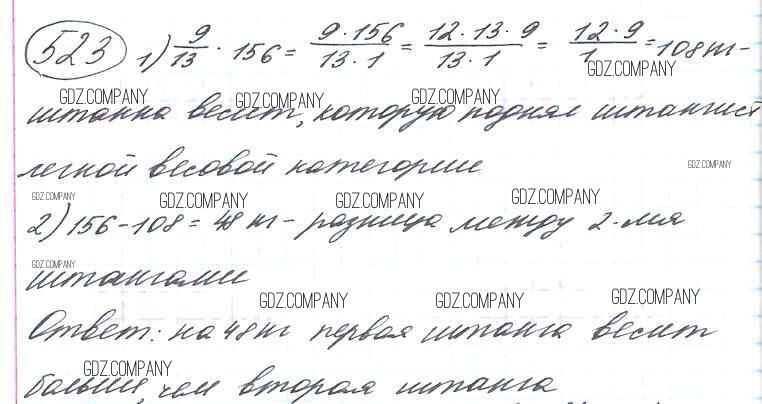 523 1) 9/13 · 156 = 9·156/13·1 = 12·13·9/13·1 = 12·9/1 = 108 кг –
GDZ.COMPANY
GDZ.COMPANY GDZ.COMPANY GDZ.COMPANY
штанга весит, которую поднял штангист
легкой весовой категории
GDZ.COMPANY
GDZ.COMPANY GDZ.COMPANY GDZ.COMPANY GDZ.COMPANY
2) 156 – 108 = 48 кг – разница между 2-мя
GDZ.COMPANY
штангами
GDZ.COMPANY GDZ.COMPANY GDZ.COMPANY
Ответ: на 48 кг первая штанга весит
GDZ.COMPANY
больше, чем вторая штанга